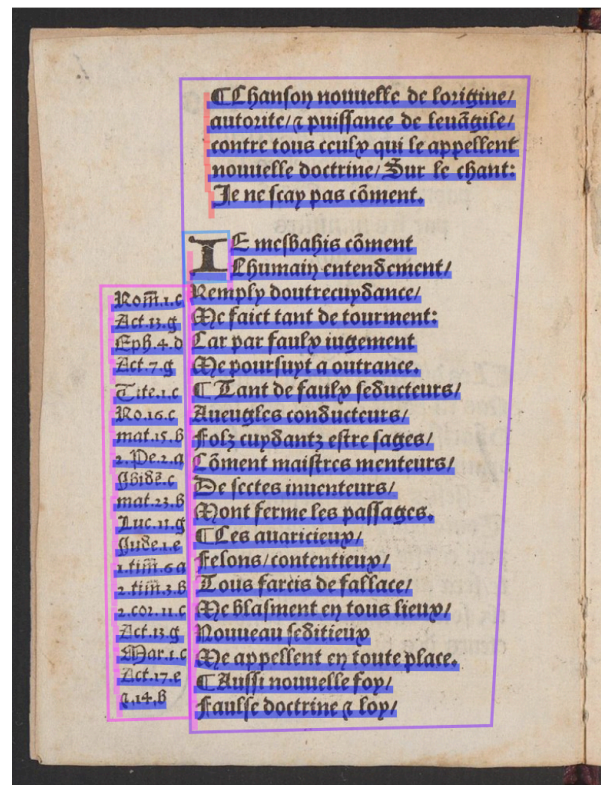 ⁋Chanson nouuelle de lorigine/
autorite/⁊ puissance de leuāgile/
contre tous ceulx qui le appellent
nouuelle doctrine/ Sur le chant:
Je ne scay pas cōment.
IE mesbahis cōment
Lhumain entendement/
Remply doutrecuydance/
Me faict tant de tourment:
Car par faulx iugement
Me poursuyt a outrance.
⁋Tant de faulx seducteurs/
Aueugles conducteurs/
Folz cuydantz estre sages/
Cōment maistres menteurs/
De sectes inuenteurs/
Mont ferme les passages.
⁋Les auaricieux/
Felons/contentieux/
Tous farcis de fallace/
Me blasment en tous lieux/
Nouueau seditieux
Me appellent en toute place.
⁋Aussi nouuelle foy/
Faulse doctrine ⁊ loy/
Rom̄.1.c
Act.13.g
Eph.4.d
Act.7.g
Tite.1.c
Ro.16.c
mat.15.b
2.Pe.2.a
Ibidē.c
mat.23.b
Luc.11.g
Iude.1.e
1.tim̄.6.a
2.tim̄.3.b
2.cor.11.c
Act.13.g
Mar.1.c
Act.17.e
⁊.14.b